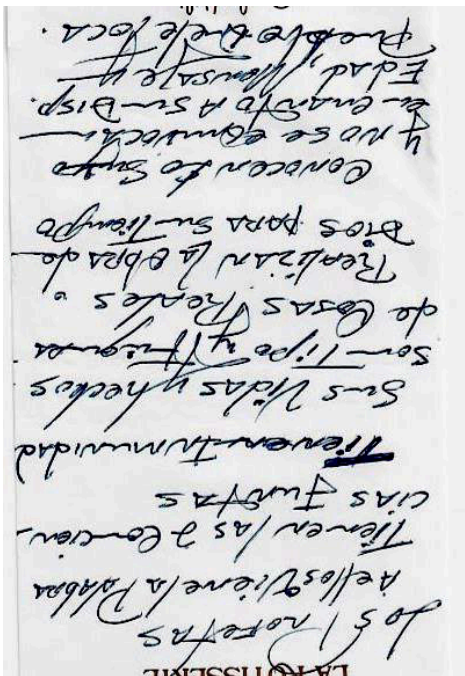 LA ROTISSERIE
Los Profetas
A ellos Viene la Palabra
Tienen las 2 Concien-
cias Juntas
Tienen Inmunidad
Sus Vidas y hechos
son Tipo y Figuras
de Cosas Reales.
Realizan la Obra de
DIOS para su Tiempo
Conocen lo Suyo
y no se equivocan
en cuanto A su Disp.
Edad, Mensaje y
Pueblo que le toca.